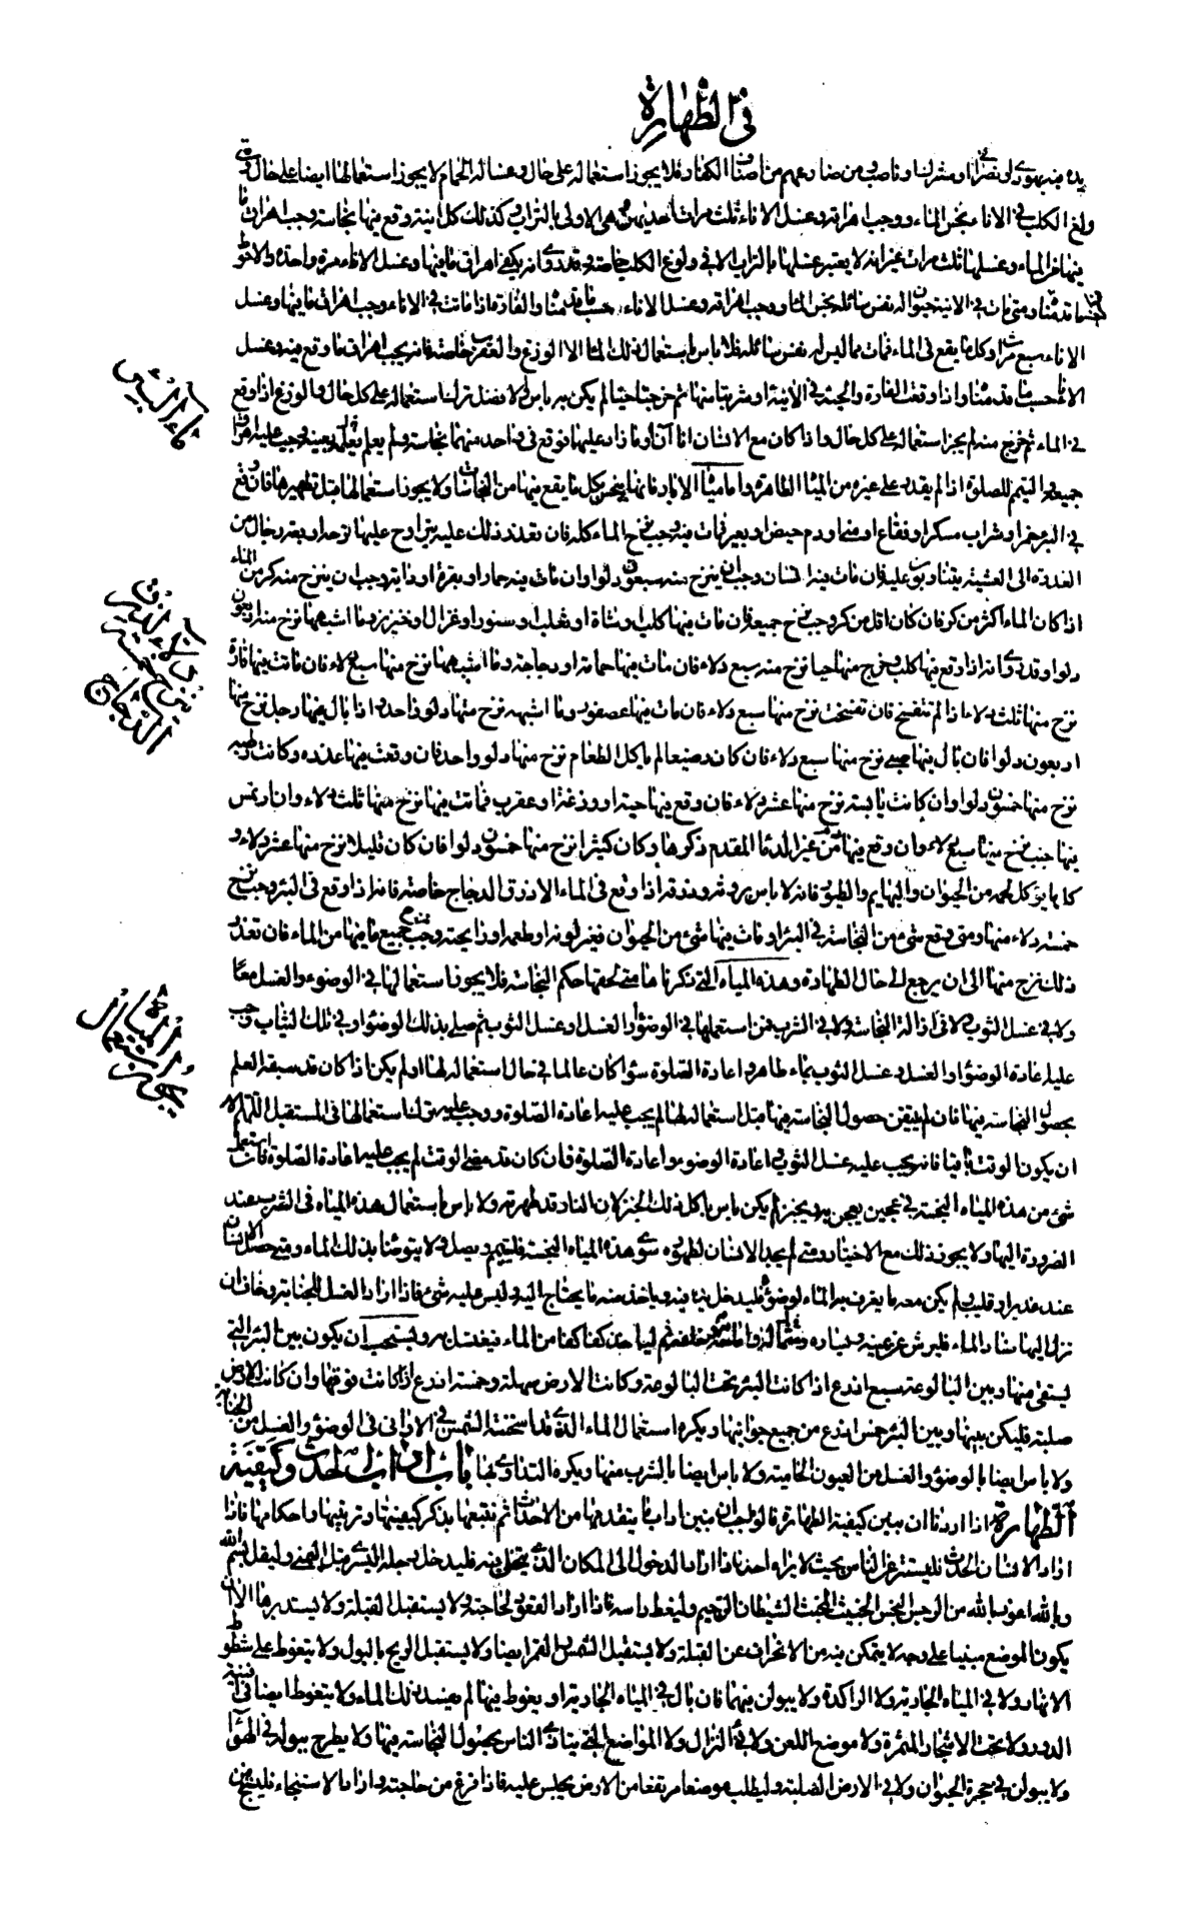 في الطهارة
يده فيه يهودي او نصراني او مشرك او ناصب ومن ضارعهم من اصناف الكفار فلا يجوز استعماله على حال وغسالة الحمام لا يجوز استعمالها ايضا على حال ومتى
ولغ الكلب في الاناء نجس الماء ووجب اهراقه وغسل الاناء ثلث مرات احديهن وهي الاولى بالتراب وكذلك كل انية وقع فيها نجاسة وجب اهراق ما
فيها من الماء وغسلها ثلث مرات غير انه لا يعتبر غسلها بالتراب الا في ولوغ الكلب خاصة وقد روي انه يكفي اهراق ما فيها وغسل الاناء مرة واحدة والاحوط
حسب ما قدمناه ومتى مات في الانية حيوان له نفس سائلة نجس الماء ووجب اهراقه وغسل الاناء حسب ما قدمناه والفارة اذا ماتت في الاناء وجب اهراق ما فيها وغسل
الاناء سبع مرات وكل ما يقع في الماء فمات مما ليس له نفس سائلة فلا باس باستعمال ذلك الماء الا الوزغ والعقرب خاصة فانه يجب اهراق ما وقع فيه وغسل
الاناء حسب ما قدمناه واذا وقعت الفارة والحية في الانية او شربتا منها ثم خرجتا حيا لم يكن به باس والافضل ترك استعماله على كل حال والوزغ اذا وقع
في الماء ثم خرج منه لم يجز استعماله على كل حال واذا كان مع الانسان اناآن او ما زاد عليها فوقع في واحد منهما نجاسة ولم يعلمه بعينه وجب عليه اهراق
جميعه والتيمم للصلوة اذا لم يقدر على غيره من المياه الطاهرة واما مياه الابار فانها ينجس بكل ما يقع فيها من النجاسات ولا يجوز استعمالها قبل تطهيرها فان وقع
في البئر خمر او شراب مسكر او فقاع او مني او دم حيض او بعير فمات فيه وجب نزح الماء كله فان تعذر ذلك عليه يتراوح عليها نوحه اربعة رجال من
الغدوة الى العشية يتناوبون عليه فان مات فيه انسان وجب ان ينزح منه سبعون دلوا وان مات فيه حمار او بقرة او دابة وجب ان ينزح منه كر من الماء
اذا كان الماء اكثر من كر فان كان اقل من كر وجب نزح جميعه فان مات فيها كلب او شاة او ثعلب او سنور او غزال او خنزير وما اشبهها نزح منه اربعون
دلوا وقد روي انه اذا وقع فيها كلب وخرج منها حيا نزح منه سبع دلاء فان مات فيها حمامة او دجاجة وما اشبههما نزح منها سبع دلاء فان ماتت فيها فارة
نزح منها ثلث دلاء اذا لم تتفسخ فان تفسخت نزح منها سبع دلاء فان مات فيها عصفور وما اشبهه نزح منها دلو واحد واذا بال فيها رجل نزح منها
اربعون دلوا فان بال فيها صبي نزح منها سبع دلاء فان كان رضيعا لم ياكل الطعام نزح منها دلو واحد فان وقعت فيها عذرة وكانت رطبة
نزح منها خمسون دلوا وان كانت يابسة نزح منها عشر دلاء فان وقع فيها حية او وزغة او عقرب فماتت فيها نزح منها ثلث دلاء وان ارتمس
فيها جنب نزح منها سبع دلاء وان وقع فيها دم من غير الدماء المقدم ذكرها وكان كثيرا نزح منها خمسون دلوا فان كان قليلا نزح منها عشر دلاء و
كل ما يؤكل لحمه من الحيوان والبهايم والطيور فانه لا باس بروثه وذرقه اذا وقع في الماء الا ذرق الدجاج خاصة فانه اذا وقع في البئر وجب نزح
خمسة دلاء منها ومتى وقع شيء من النجاسة في البئر او مات فيها شيء من الحيوان فغير لونه او طعمه او رايحته وجب نزح جميع ما فيها من الماء فان تعذر
ذلك نزح منها الى ان يرجع الى حال الطهارة وهذه المياه التي ذكرناها متى لحقها حكم النجاسة فلا يجوز استعمالها في الوضوء والغسل معا
ولا في غسل الثوب ولا في ازالة النجاسة ولا في الشرب فمن استعملها في الوضوء او الغسل او غسل الثوب ثم صلى بذلك الوضوء او في تلك الثياب وجب
عليه اعادة الوضوء او الغسل وغسل الثوب بماء طاهر واعادة الصلوة سواء كان عالما في حال استعماله لها او لم يكن اذا كان قد سبقه العلم
بحصول النجاسة فيها فان لم يتيقن حصول النجاسة فيها قبل استعماله لها لم يجب عليه اعادة الصلوة ووجب عليه ترك استعمالها في المستقبل اللهم الا
ان يكون الوقت باقيا فانه يجب عليه غسل الثوب واعادة الوضوء واعادة الصلوة فان كان قد مضى الوقت لم يجب عليه اعادة الصلوة فان استعمل
شيء من هذه المياه النجسة في عجين يعجن به ويخبز لم يكن باس باكل ذلك الخبز لان النار قد طهرته ولا باس باستعمال هذه المياه في الشرب عند
الضرورة اليها ولا يجوز ذلك مع الاختيار ومتى لم يجد الانسان لطهوره سوى هذه المياه النجسة فليتيمم وليصل ولا يتوضا بذلك الماء ومتى حصل الانسان
عند غدير او قليب ولم يكن معه ما يغرف به الماء لوضوئه فليدخل يده فيه وياخذ منه ما يحتاج اليه وليس عليه شيء فاذا اراد الغسل للجنابة وخاف ان
نزل اليها فساد الماء فليرش عن يمينه ويساره وامامه وخلفه ثم لياخذ كفا كفا من الماء فيغتسل به ويستحب ان يكون بين البئر التي
يستقى منها وبين البالوعة سبع اذرع اذا كانت البئر تحت البالوعة وكانت الارض سهلة وخمسة اذرع اذا كانت فوقها وان كانت الارض
صلبة فليكن بينها وبين البئر خمس اذرع من جميع جوانبها ويكره استعمال الماء الذي قد اسخنته الشمس في الاواني في الوضوء والغسل من الجنابة
ولا باس ايضا بالوضوء والغسل من العيون الحامية ولا باس ايضا بالشرب منها ويكره التداوي بها باب اداب الحدث وكيفية
الطهارة اذا اردنا ان نبين كيفية الطهارة فالواجب ان نبين اداب ما يتقدمها من الاحداث ثم نتبعها بذكر كيفيتها وترتيبها واحكامها فاذا
اراد الانسان الحدث فليستتر عن الناس بحيث لا يراه احد فاذا اراد الدخول الى المكان الذي يتخلى فيه فليدخل رجله اليسرى قبل اليمنى وليقل بسم الله
وبالله اعوذ بالله من الرجس النجس الخبيث المخبث الشيطان الرجيم وليغط راسه فاذا اراد القعود لحاجته فلا يستقبل القبلة ولا يستدبرها الا ان
يكون الموضع مبنيا على وجه لا يتمكن فيه من الانحراف عن القبلة ولا يستقبل الشمس ولا القمر ايضا ولا يستقبل الريح بالبول ولا يتغوط على شطوط
الانهار ولا في المياه الجارية ولا الراكدة ولا يبولن فيهما فان بال في المياه الجارية او يغوط فيها لم يفسد ذلك الماء ولا يتغوط ايضا في افنية
الدور ولا تحت الاشجار المثمرة ولا موضع اللعن ولا فيء النزال ولا المواضع التي يتاذى الناس بحصول النجاسة فيها ولا يطرح ببوله في الهواء
ولا يبولن في جحرة الحيوان ولا في الارض الصلبة وليطلب موضعا مرتفعا من الارض يجلس عليه فاذا فرغ من حاجته واراد الاستنجاء فليتنح من
ماء البئر
الدجاج
المياه